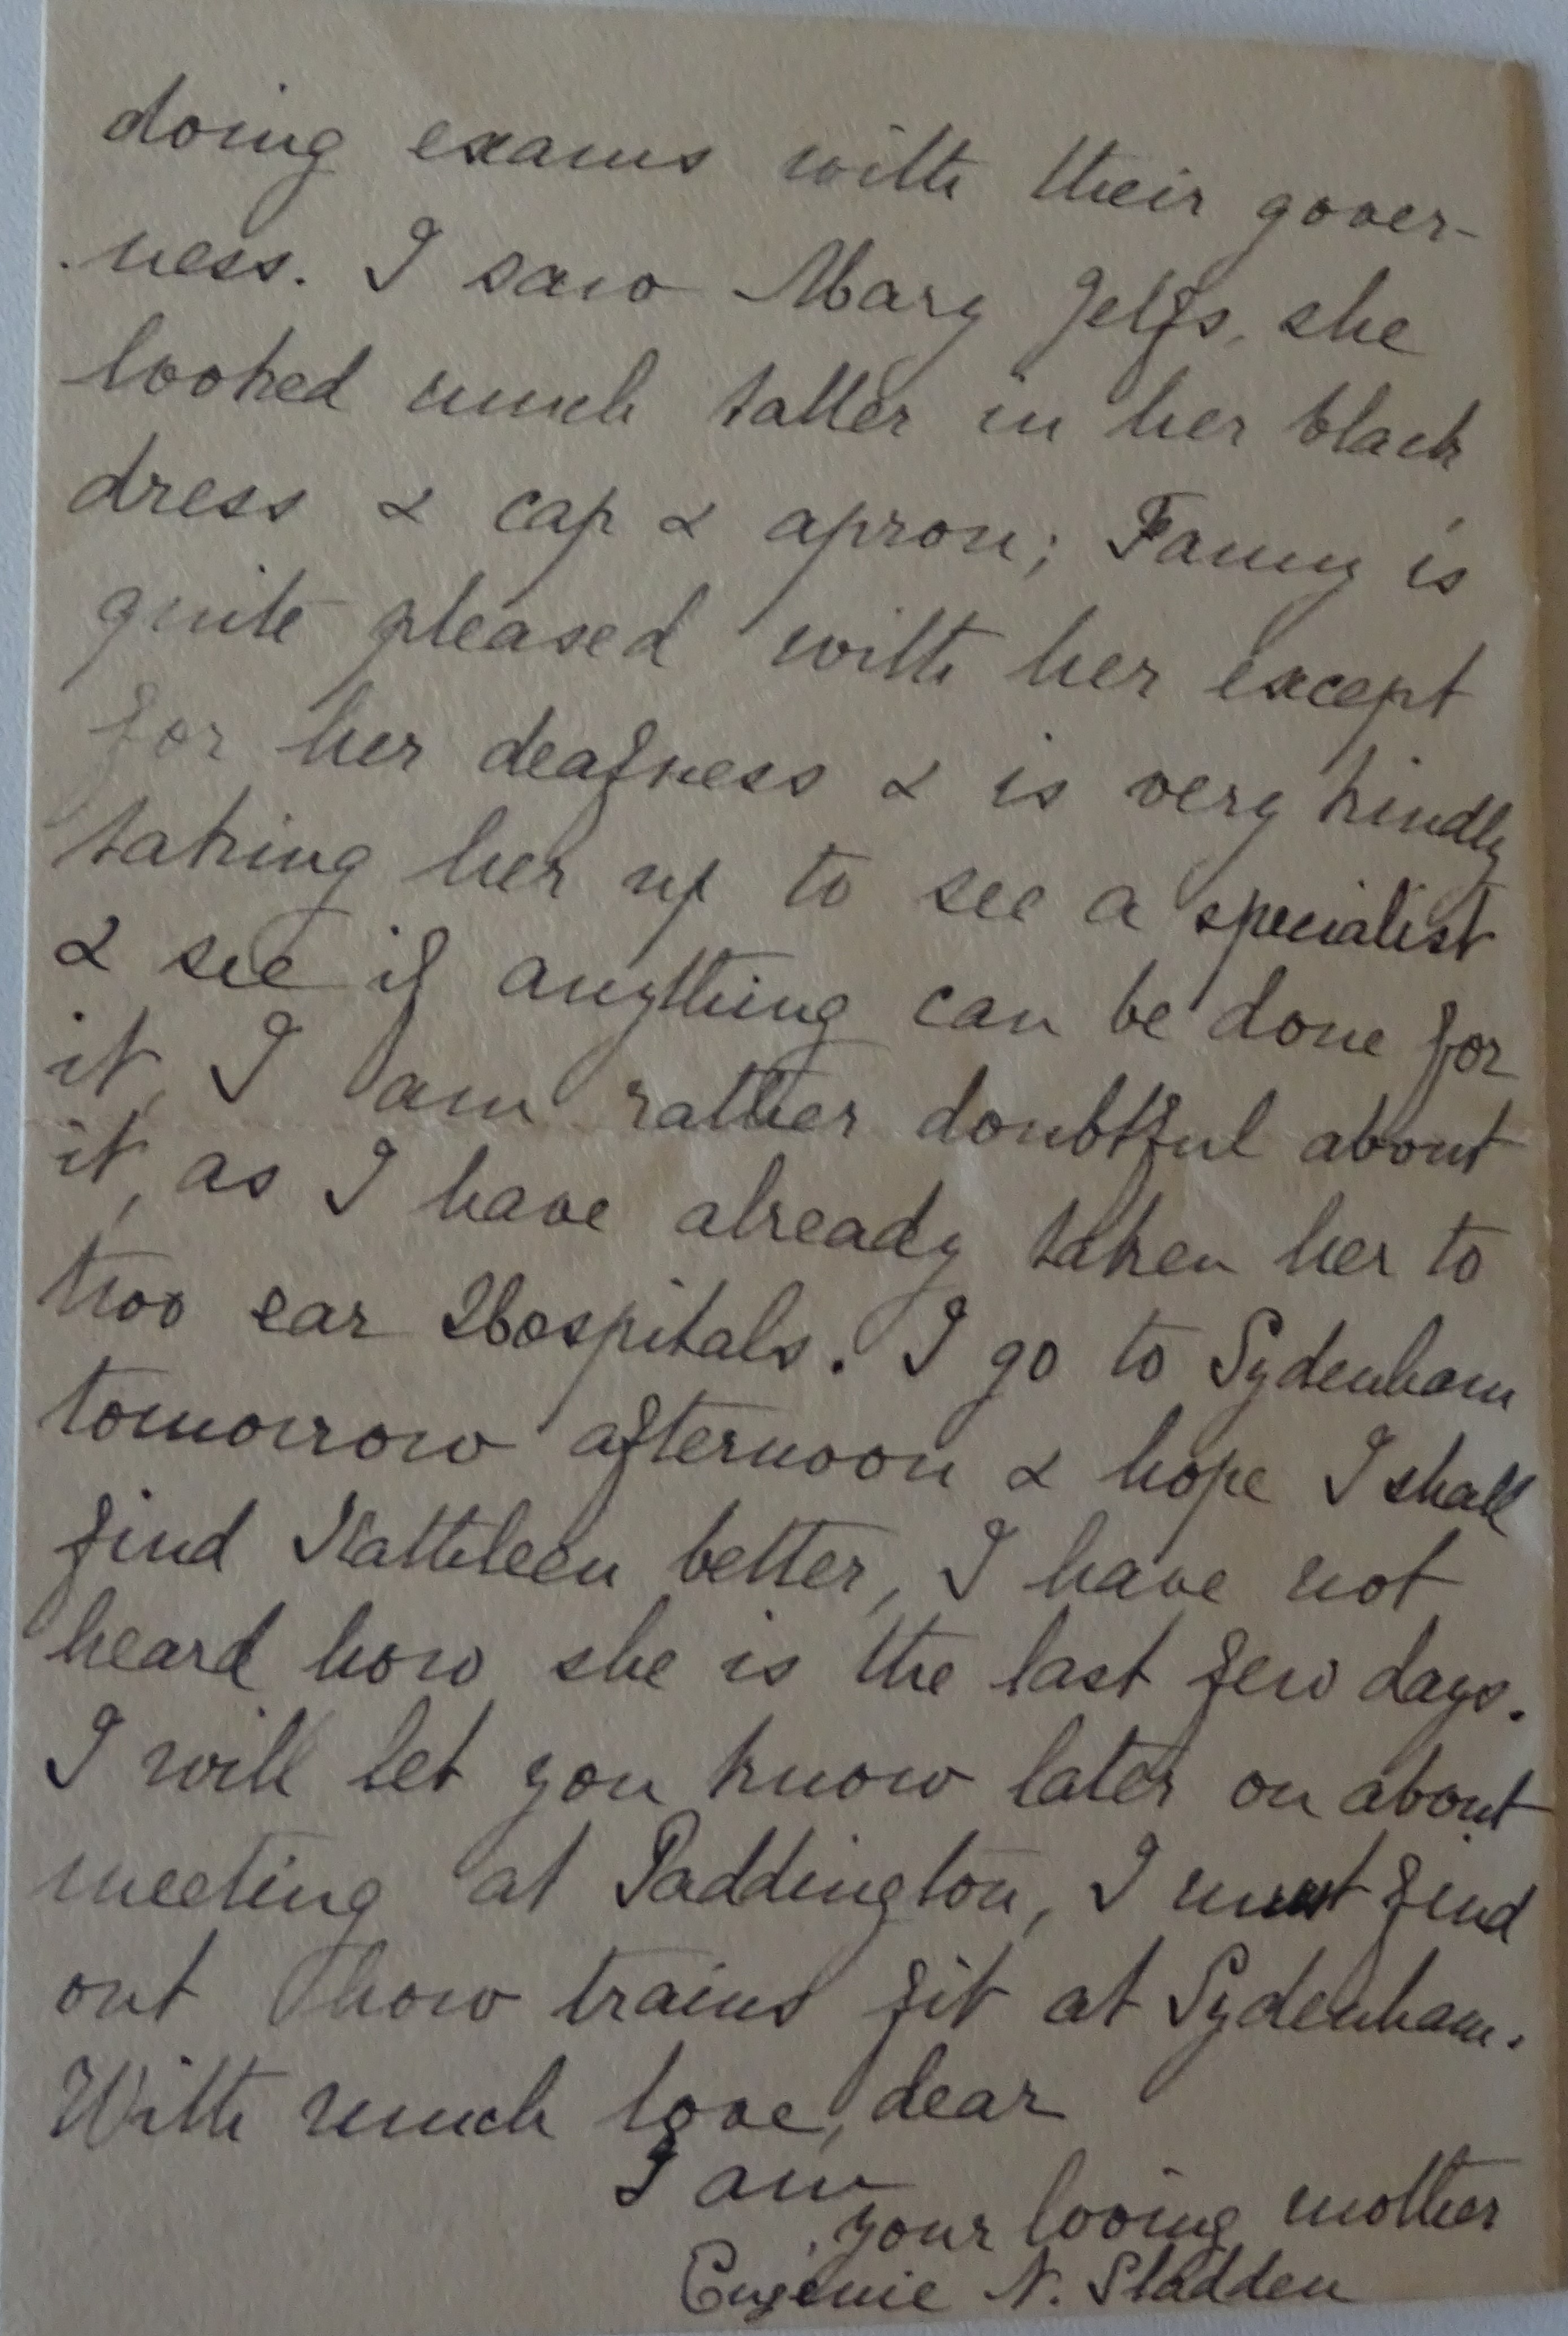 doing exams with their gover-
ness. I saw Mary Jelfs, she
looked much taller in her black
dress & cap & apron; Fanny is
quite pleased with her except
for her deafness & is very kindly
taking her up to see a specialist
& see if anything can be done for
it, I am rather doubtful about
it, as I have already taken her to
two ear Hospitals. I go to Sydenham
tomorrow afternoon & hope I shall
find Kathleen better, I have not
heard how she is the last few days.
I will let you know later on about
meeting at Paddington, I must find
out how trains fit at Sydenham.
With much love, dear
I am
your loving mother
Eugénie N. Sladden